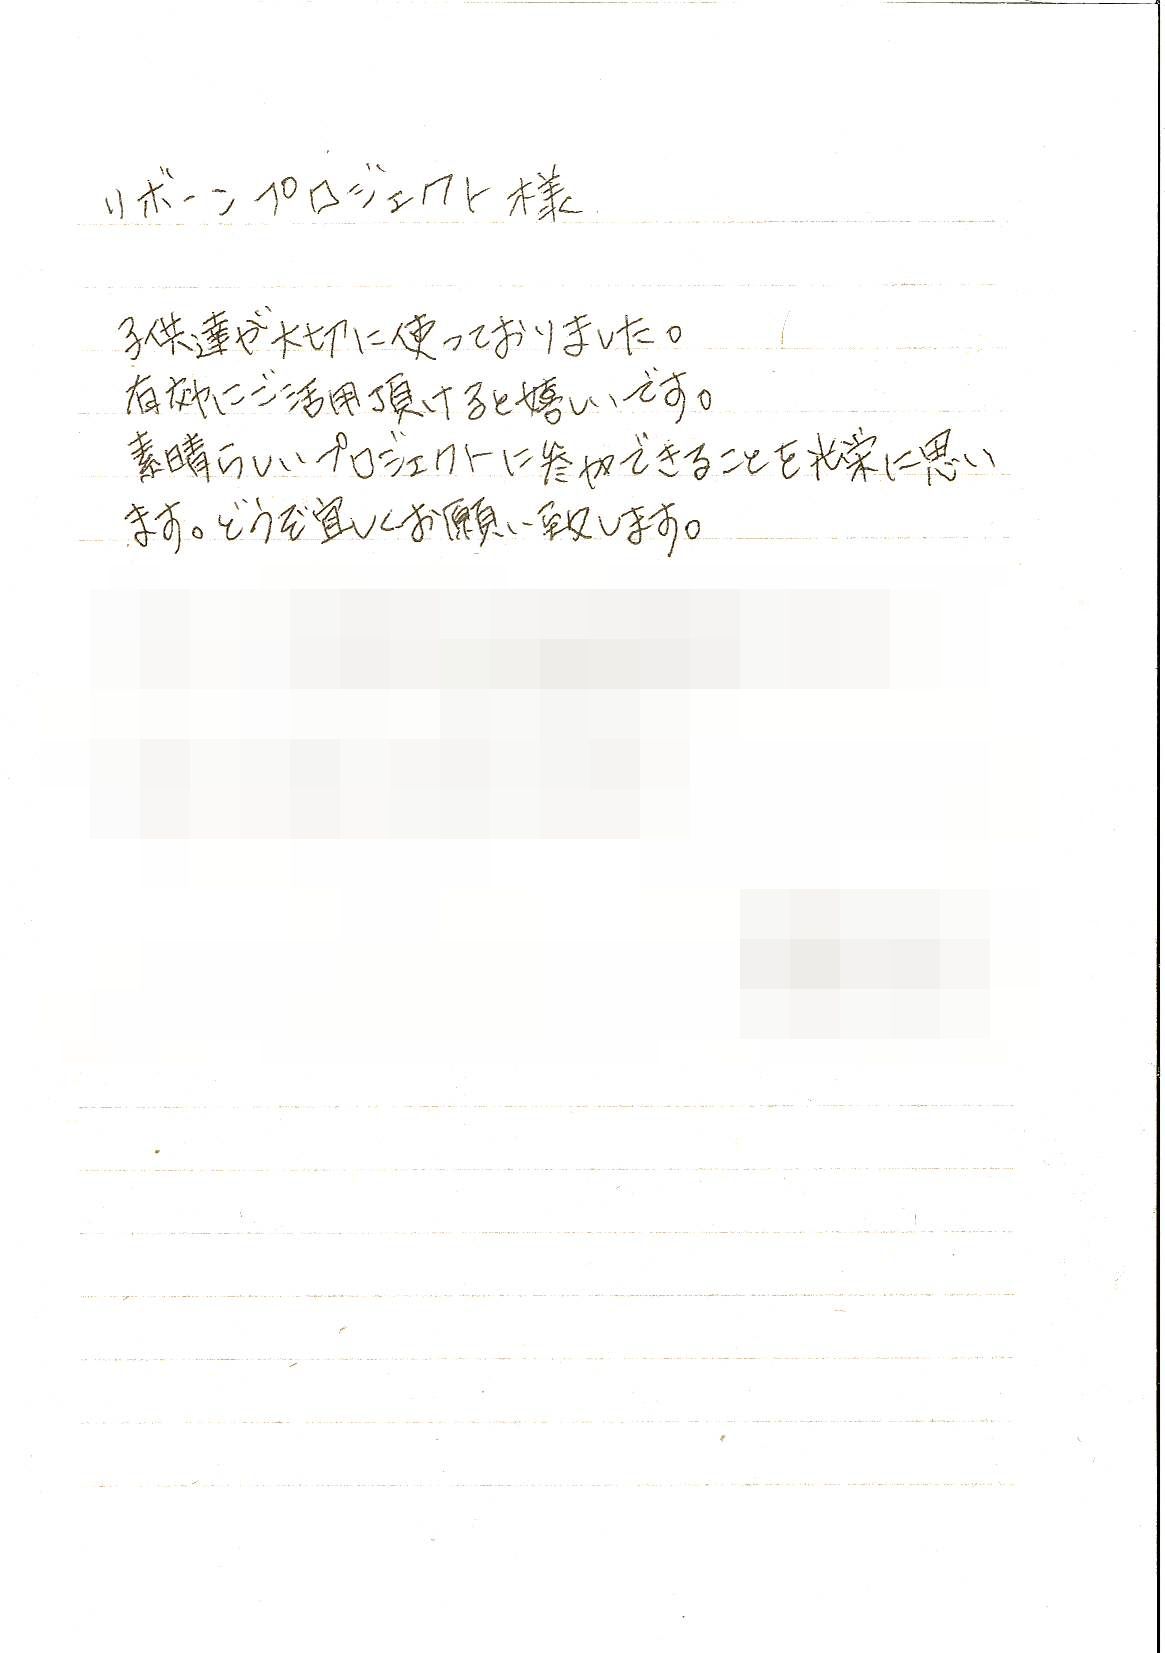 リボーンプロジェクト様
子供達が大切に使っておりました。
有効にご活用頂けると嬉しいです。
素晴らしいプロジェクトに参加できることを光栄に思い
ます。どうぞ宜しくお願い致します。